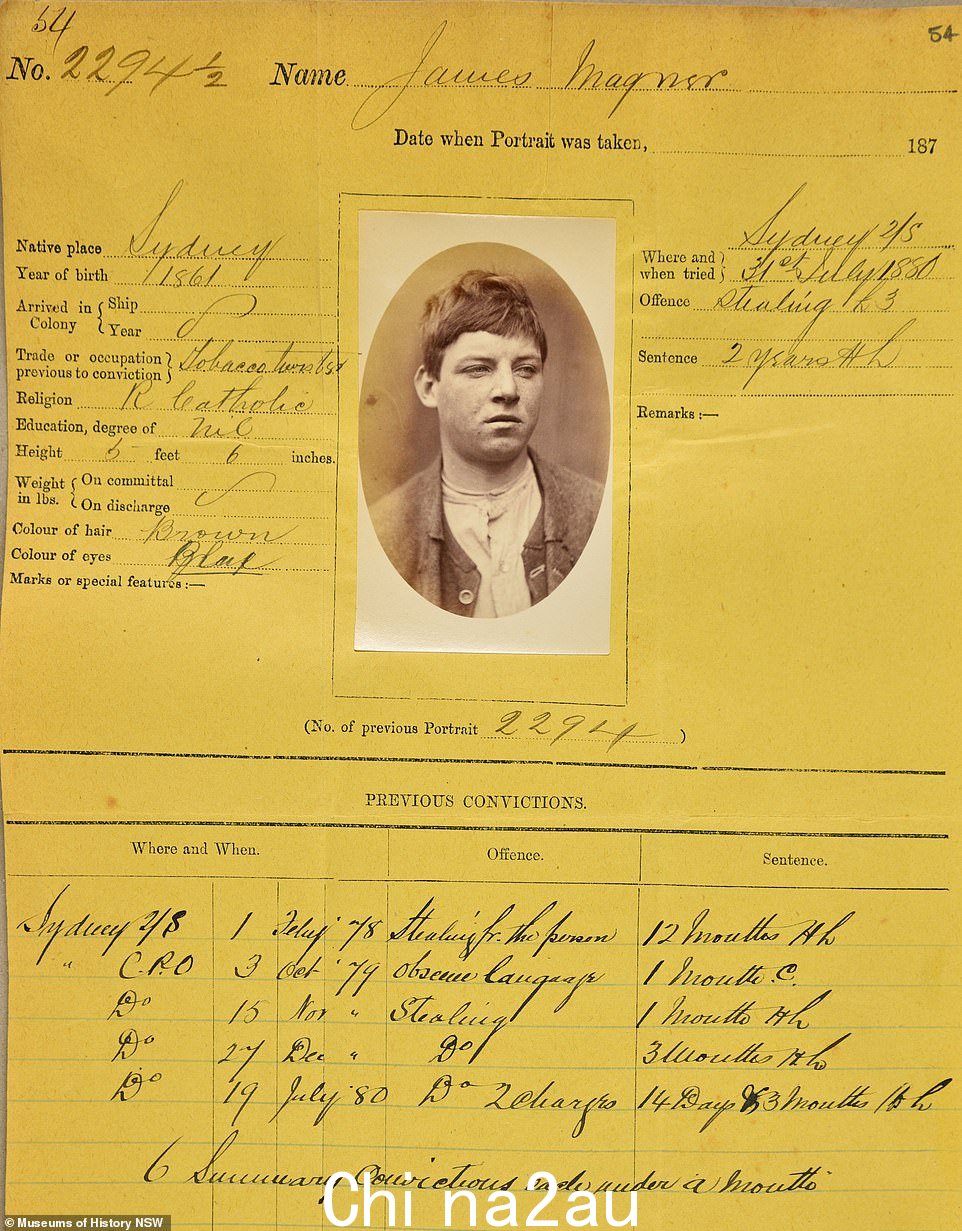 54
54
No. 2294 1/2 Name James Magner
Date when Portrait was taken, 187
Native place Sydney
Year of birth 1861
Arrived in Colony { Ship
Year
Trade or occupation previous to conviction } Tobacco twister
Religion R Catholic
Education, degree of Nil
Height 5 feet 6 inches.
Weight in lbs. { On committal
On discharge
Colour of hair Brown
Colour of eyes
Marks or special features:—
Where and when tried } Sydney 2/S
31st July 1880
Offence Stealing £3
Sentence 2 years H L
Remarks:—
(No. of previous Portrait 2294 )
PREVIOUS CONVICTIONS.
Where and When. Offence. Sentence.
Sydney 2/S 1 Feby '78 Stealing fr. the person 12 Months H L
" C.P.O 3 Oct '79 Obscene language 1 Month C.
Do 15 Nov " Stealing 1 Month H L
Do 27 Dec " Do 3 Months H L
Do 19 July '80 Do 2 Charges 14 Days & 3 Months H L
6 Summary Convictions each under a Month
Chi na2au
© Museums of History NSW